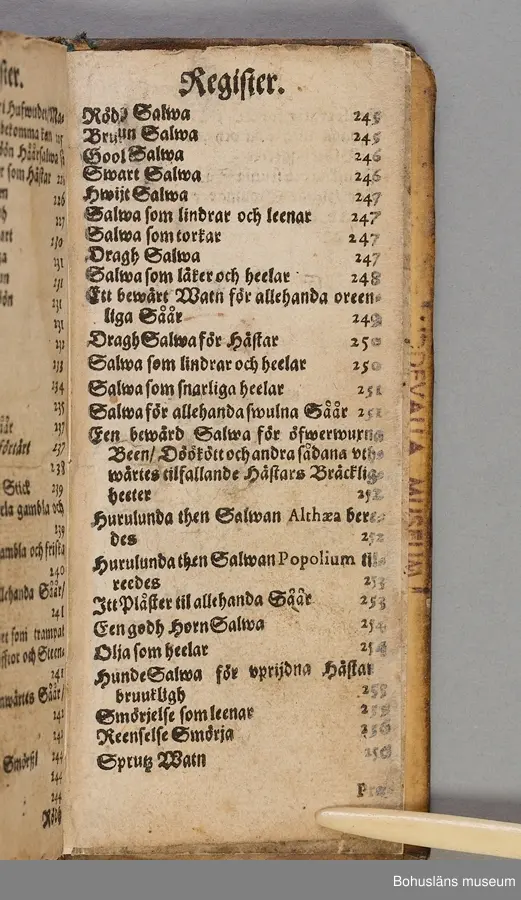 Register.
Rödh Salwa 245
Bruun Salwa 245
Gool Salwa 246
Swart Salwa 246
Hwijt Salwa 247
Salwa som lindrar och leenar 247
Salwa som torkar 247
Dragh Salwa 247
Salwa som läker och heelar 248
Ett bewärt Watn för allehanda oreen-
liga Såår 249
Dragh Salwa för Hästar 250
Salwa som lindrar och heelar 250
Salwa som snarliga heelar 251
Salwa för allehanda swulna Såår 251
Een bewärd Salwa för öfwerwuxna
Been/ Döökött och andra sådana vth-
wärtes tilfallande Hästars Bräcklig-
heeter 252
Hurulunda then Salwan Althæa bere-
des 252
Hurulunda then Salwan Popolium til-
reedes 253
Itt Plåster til allehanda Såår 253
Een godh Horn Salwa 254
Olja som heelar 254
Hunde Salwa för vprijdna Hästar
bruukligh 255
Smörjelse som leenar 255
Reenselse Smörja 256
Sprutz Watn 256
UDDEVALLA MUSEUM
226
227
230
231
231
231
231
232
233
234
235
237
237
238
Stick 239
gambla och
239
gambla och friska
240
allehanda Såår/
241
som trampat
och Steen-
241
nwärtes Såår/
242
242
244
244
Rödh
Bohusläns museum